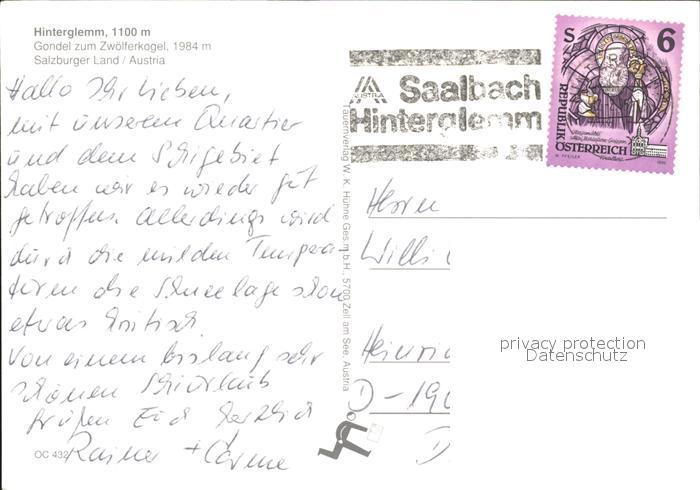 Hinterglemm, 1100 m
Gondel zum Zwölferkogel, 1984 m
Salzburger Land / Austria
Hallo Ihr Lieben,
mit unserem Quartier
und dem Skigebiet
haben wir es wieder gut
getroffen. Allerdings wird
durch die milden Tempera-
turen die Schneelage schon
etwas kritisch.
Von einem bislang sehr
schönen Skiurlaub
grüßen Euch herzlich
Rainer +
OC 432
Tauernverlag W. K. Hühne Ges.m.b.H., 5700 Zell am See, Austria
AUSTRIA
Saalbach
Hinterglemm
S 6
REPUBLIK
ÖSTERREICH
Herrn
Willi
Heinric
D-190
D
privacy protection
Datenschutz